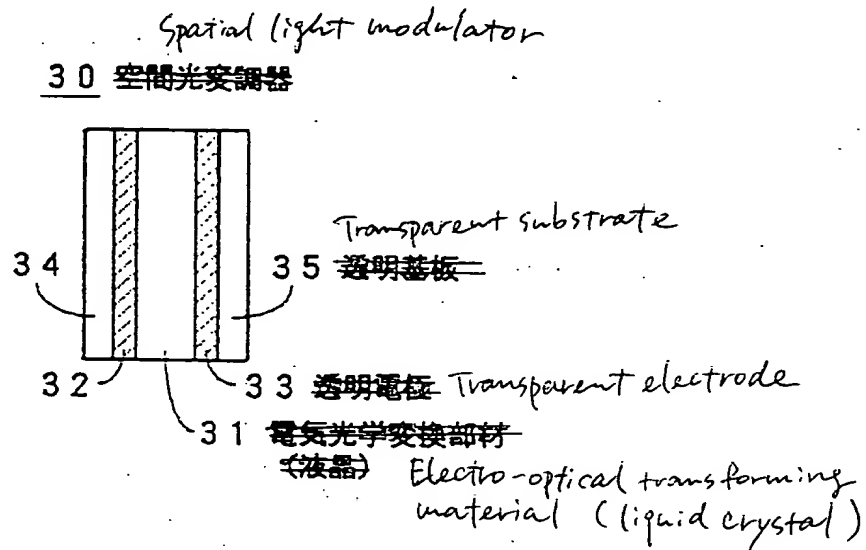 Spatial light modulator
30 空間光変調器
Transparent substrate
34
35 透明基板
32
33 透明電極 Transparent electrode
31 電気光学変換部材
(液晶) Electro-optical transforming
material (liquid crystal)